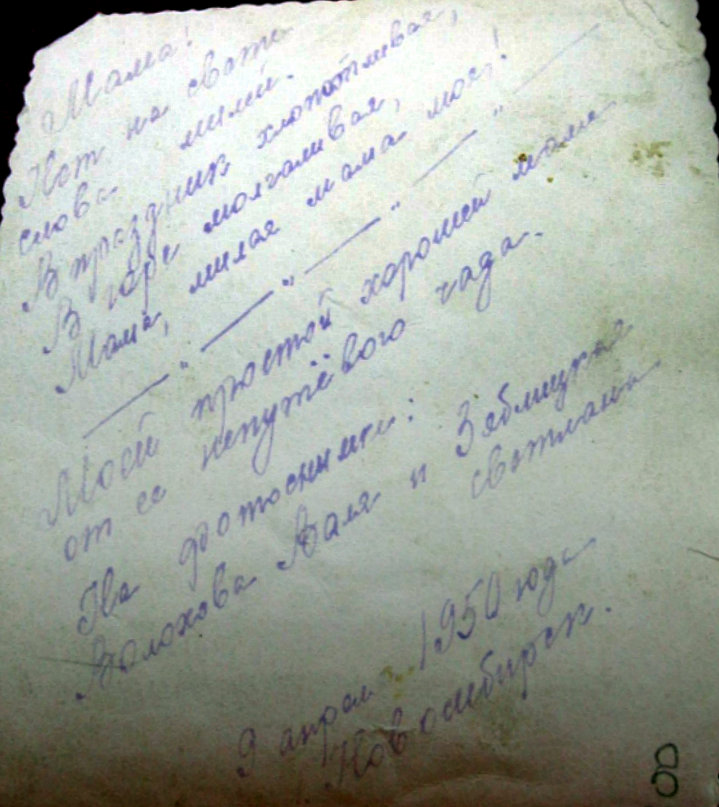 Мама!
Нет на свете
слова милей.
В праздник хлопотливая,
В горе молчаливая,
Мама, милая мама моя!
— „ — „ — „ — „ —
Моей простой хорошей маме
от ее непутёвого чада.
На фотоснимке:
Волохова Валя и Зяблицкая
Светлана
9 апрель 1950 года
Новосибирск.
8